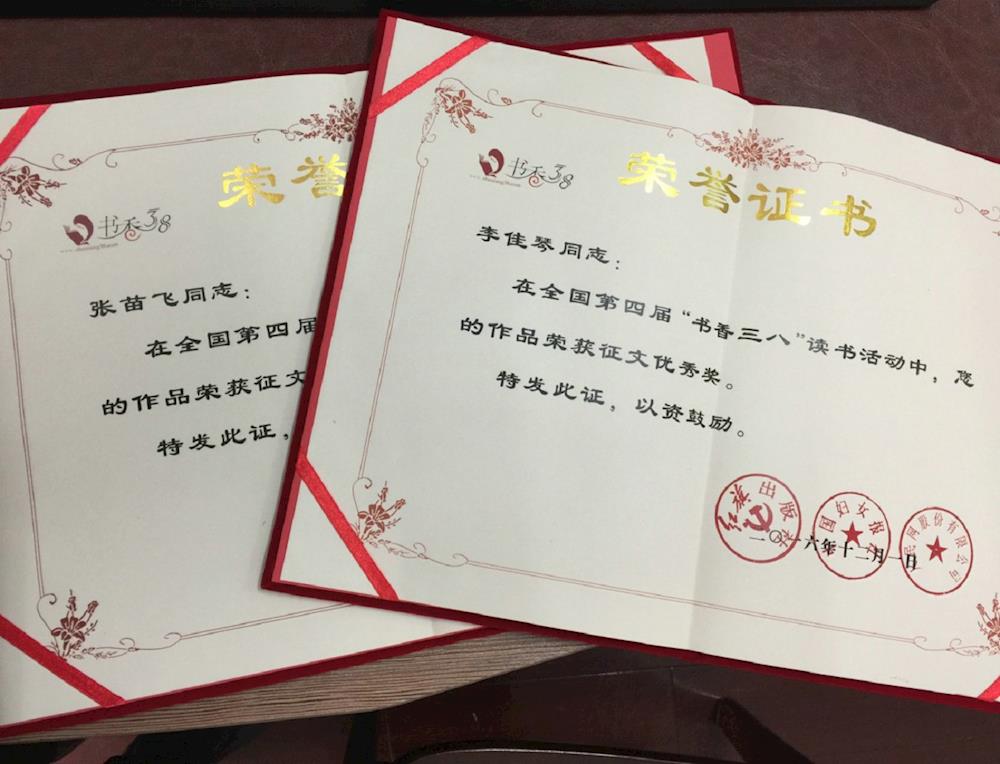 荣誉
书香38
张苗飞同志：
在全国第四届
的作品荣获征文
特发此证，
荣誉证书
书香38
李佳琴同志：
在全国第四届“书香三八”读书活动中，您
的作品荣获征文优秀奖。
特发此证，以资鼓励。
红旗出版社
国妇女报社
民网股份有限公司
二〇一六年十二月一日